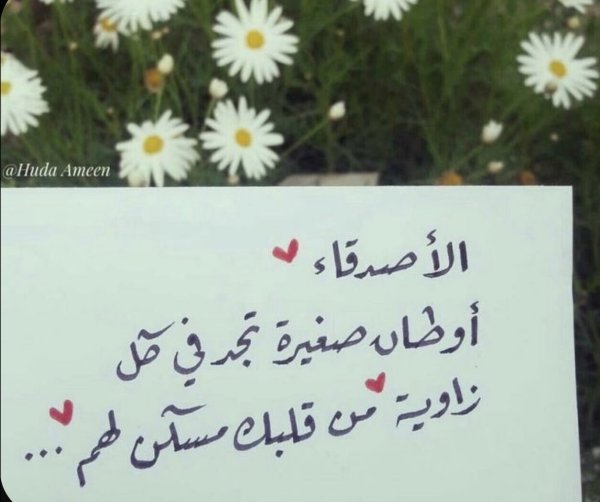 @Huda Ameen
الأصدقاء
أوطان صغيرة تجد في كل
زاوية من قلبك مسكن لهم ...